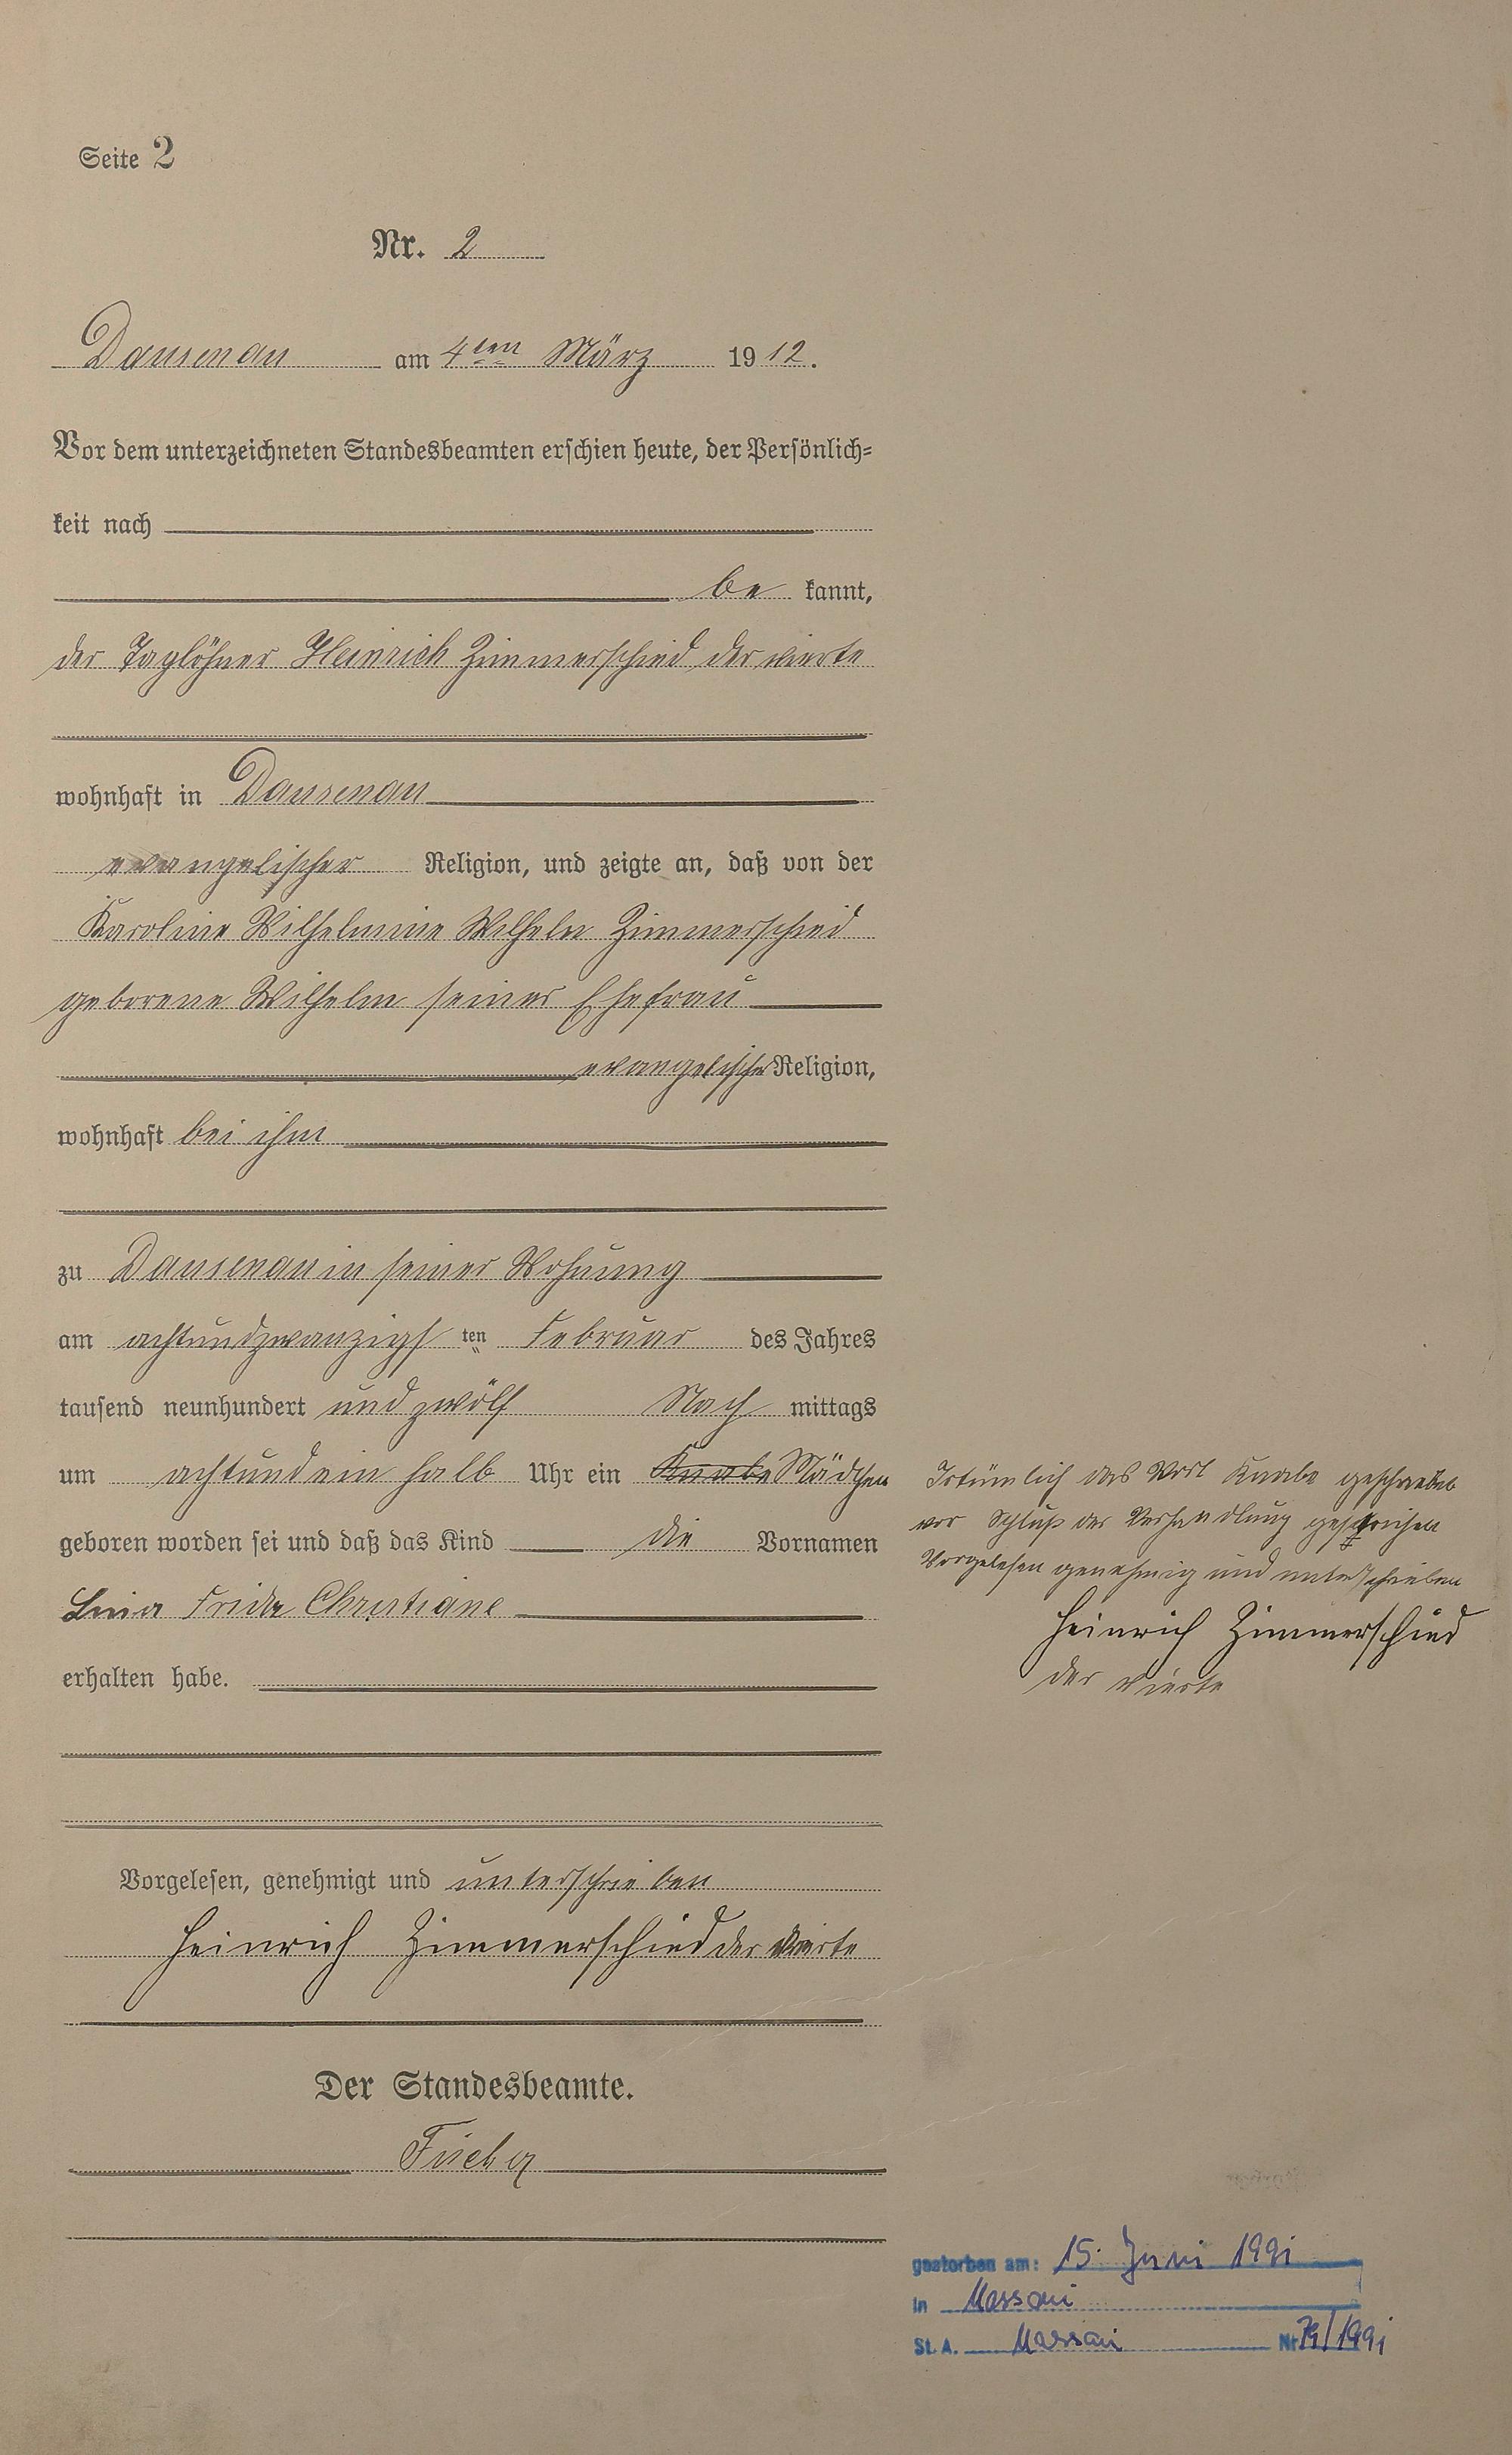 Seite 2
Nr. 2
Dausenau am 4ten März 1912.
Vor dem unterzeichneten Standesbeamten erschien heute, der Persönlich=
keit nach
be kannt,
der Taglöhner Heinrich Zimmerschied der vierte
wohnhaft in Dausenau
evangelischer Religion, und zeigte an, daß von der
Karoline Wilhelmine Wilhelm Zimmerschied
geborene Wilhelm seiner Ehefrau
evangelischer Religion,
wohnhaft bei ihm
zu Dausenau in seiner Wohnung
am achtundzwanzigs ten Februar des Jahres
tausend neunhundert und zwölf Nach mittags
um achtundein halb Uhr ein Knabe Mädchen
geboren worden sei und daß das Kind die Vornamen
Lina Frida Christiane
erhalten habe.
Irtümlich das Wort Knabe geschrieben
vor Schluß der Verhandlung gestrichen
Vorgelesen genehmig und unterschrieben
Heinrich Zimmerschied
der vierte
Vorgelesen, genehmigt und unterschrieben
Heinrich Zimmerschied der vierte
Der Standesbeamte.
gestorben am: 15. Juni 1991
in Nassau
St. A. Nassau Nr 79/1991